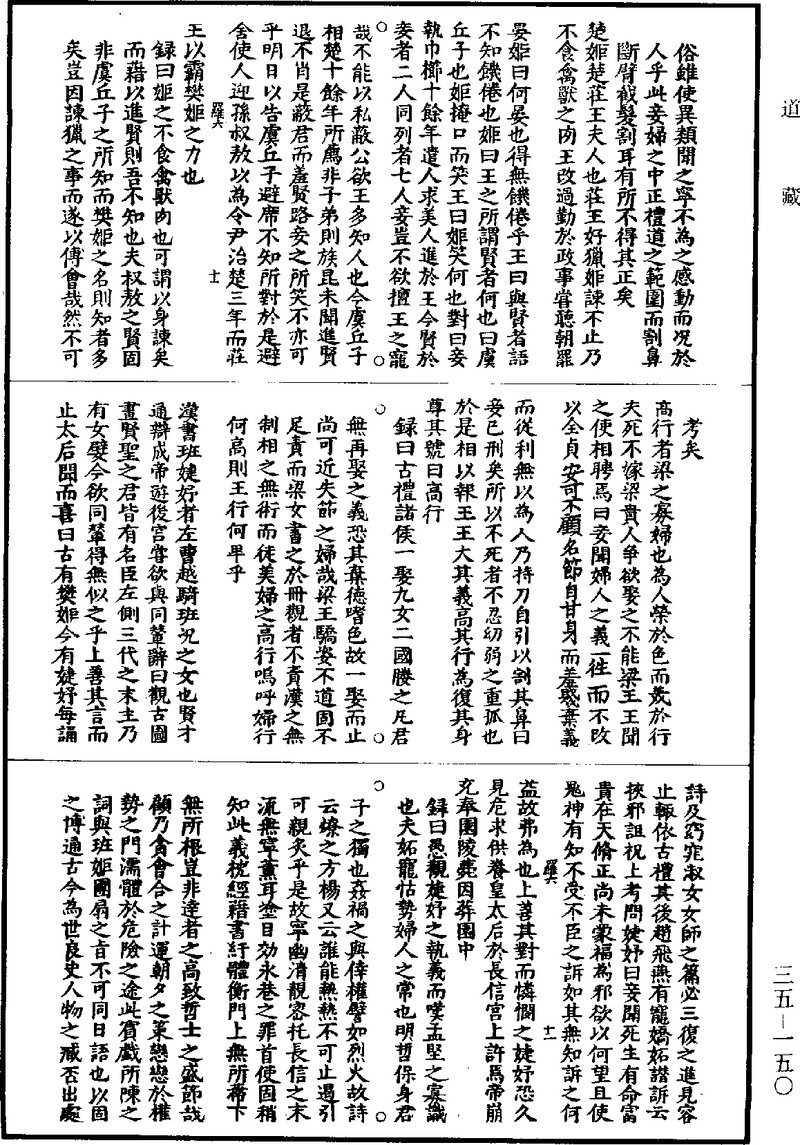 道藏
俗雖使異類聞之寧不為之感動而況於
人乎此妾婦之中正禮道之範圍而割鼻
斷臂截髮割耳有所不得其正矣
楚姬楚莊王夫人也莊王好獵姬諫不止乃
不食禽獸之肉王改過勤於政事嘗聽朝罷
晏姬曰何晏也得無饑倦乎王曰與賢者語
不知饑倦也姬曰王之所謂賢者何也曰虞
丘子也姬掩口而笑王曰姬笑何也對曰妾
執巾櫛十餘年遣人求美人進於王今賢於
妾者二人同列者七人妾豈不欲擅王之寵
哉不能以私蔽公欲王多知人也今虞丘子
相楚十餘年所薦非子弟則族昆未聞進賢
退不肖是蔽君而羞賢路妾之所笑不亦可
乎明日以告虞丘子避席不知所對於是避
舍使人迎孫叔敖以為令尹治楚三年而莊
羅六
十一
王以霸樊姬之力也
録曰姬之不食禽獸肉也可謂以身諫矣
而藉以進賢則吾不知也夫叔敖之賢固
非虞丘子之所知而樊姬之名則知者多
矣豈因諫獵之事而遂以傅會哉然不可
考矣
高行者梁之寡婦也為人榮於色而敏於行
夫死不嫁梁貴人爭欲娶之不能梁王王聞
之使相聘焉曰妾聞婦人之義一往而不改
以全貞安可不顧名節自甘身而羞賤棄義
而從利無以為人乃持刀自引以割其鼻曰
妾已刑矣所以不死者不忍幼弱之重孤也
於是相以報王王大其義高其行為復其身
尊其號曰高行
録曰古禮諸侯一娶九女二國媵之凡君
無再娶之義恐其棄德嗜色故一娶而止
尚可近失節之婦哉梁王驕姿不道固不
足責而梁女書之於冊觀者不責漢之無
制相之無術而徒美婦之高行嗚呼婦行
何高則王行何卑乎
漢書班婕妤者左曹越騎班況之女也賢才
通辯成帝遊後宮嘗欲與同輦辭曰觀古圖
畫賢聖之君皆有名臣左側三代之末主乃
有女嬖今欲同輦得無似之乎上善其言而
止太后聞而喜曰古有樊姬今有婕妤每誦
詩及窈窕淑女女師之篇必三復之進見容
止輒依古禮其後趙飛燕有寵嬌妬譖訴云
挾邪詛祝上考問婕妤曰妾聞死生有命富
貴在天脩正尚未蒙福為邪欲以何望且使
鬼神有知不受不臣之訴如其無知訴之何
羅六
十二
益故弗為也上善其對而憐憫之婕妤恐久
見危求供養皇太后於長信宮上許焉帝崩
充奉園陵薨因葬園中
録曰愚觀婕妤之執義而嘆孟堅之寡識
也夫妬寵怙勢婦人之常也明哲保身君
子之獨也姦禍之與倖權譬如烈火故詩
云燎之方楊又云誰能熱熱不可止遏引
可親炙乎是故寧幽清靚容托長信之末
流無寧薰耳塗目効永巷之罪首使固稍
知此義枕經藉書紆體衡門上無所蔕下
無所根豈非達者之高致哲士之盛節哉
顧乃貪會合之計運朝夕之策戀戀於權
勢之門濡體於危險之途此賓戲所陳之
詞與班姬團扇之旨不可同日語也以固
之博通古今為世良史人物之臧否出處
三五―一五〇